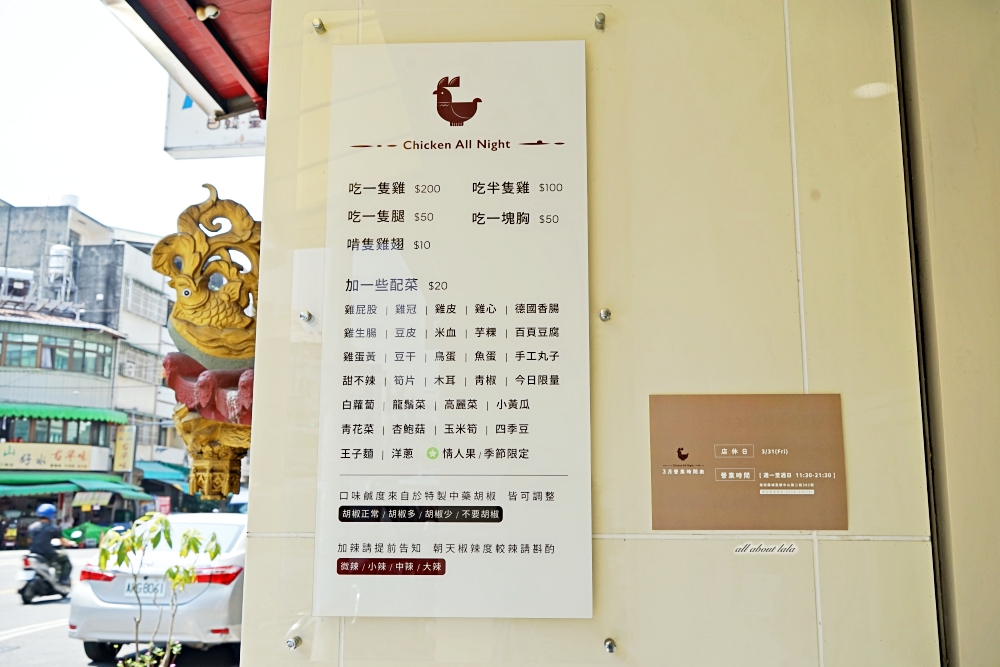 Chicken All Night
吃一隻雞 $200 吃半隻雞 $100
吃一隻腿 $50 吃一塊胸 $50
啃隻雞翅 $10
加一些配菜 $20
雞屁股 | 雞冠 | 雞皮 | 雞心 | 德國香腸
雞生腸 | 豆皮 | 米血 | 芋粿 | 百頁豆腐
雞蛋黃 | 豆干 | 鳥蛋 | 魚蛋 | 手工丸子
甜不辣 | 筍片 | 木耳 | 青椒 | 今日限量
白蘿蔔 | 龍鬚菜 | 高麗菜 | 小黃瓜
青花菜 | 杏鮑菇 | 玉米筍 | 四季豆
王子麵 | 洋蔥 | 情人果/季節限定
口味鹹度來自於特製中藥胡椒 皆可調整
胡椒正常 / 胡椒多 / 胡椒少 / 不要胡椒
加辣請提前告知 朝天椒辣度較辣請斟酌
微辣 / 小辣 / 中辣 / 大辣
店休日 3/31(Fri)
3月營業時間表
營業時間 [ 週一至週日 11:30-21:30 ]
all about lala